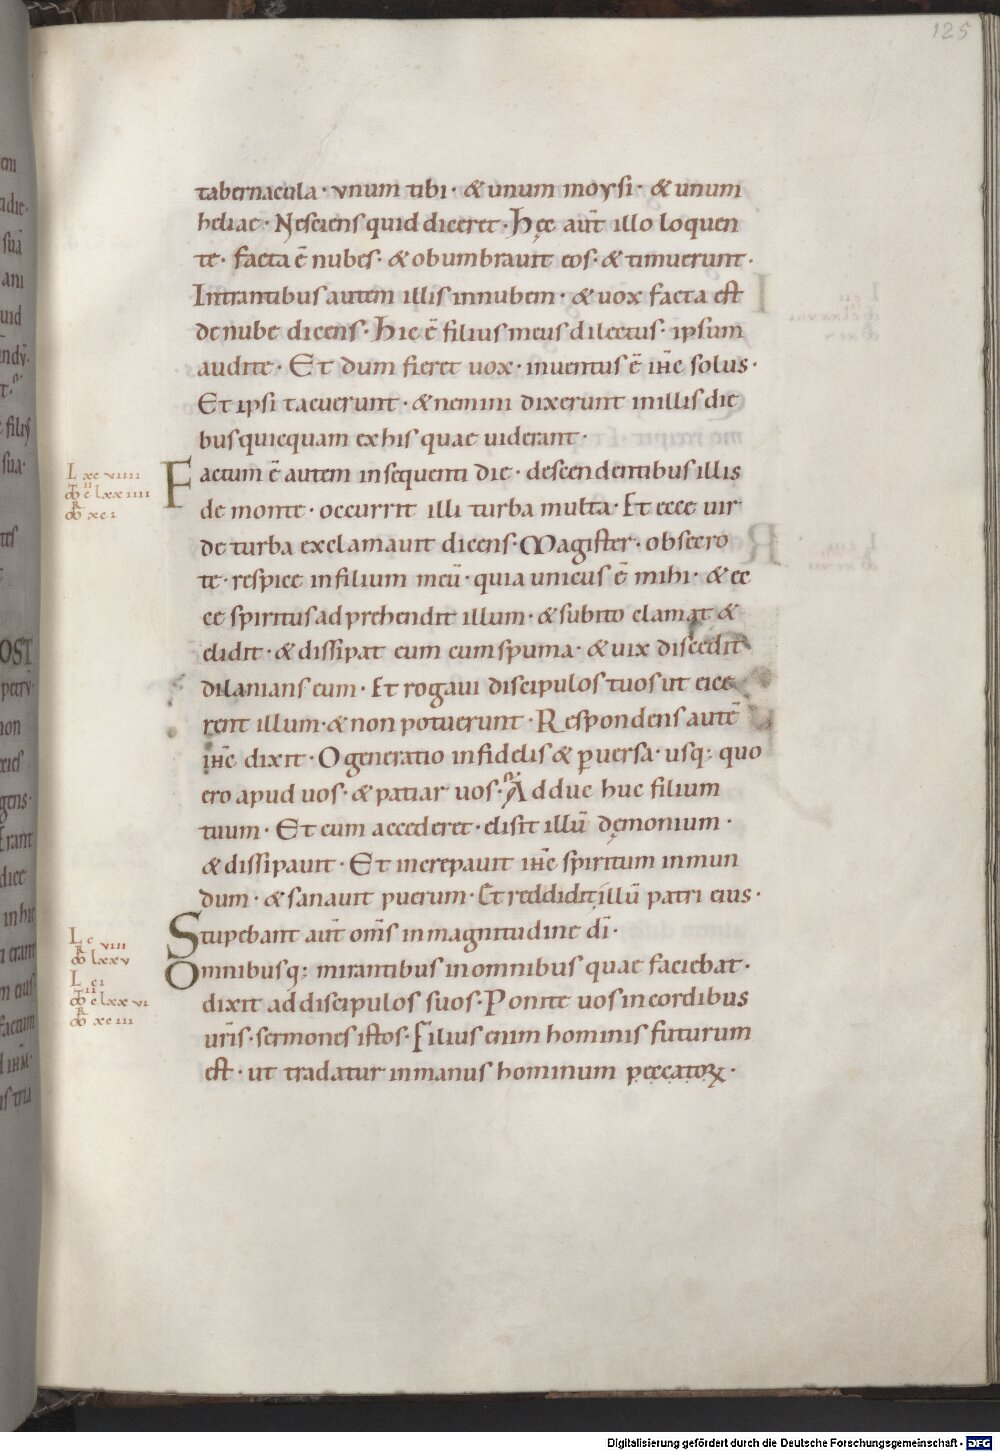 125
tabernacula · vnum tibi · & unum moysi · & unum
heliae · Nesciens quid diceret · Hęc aut̄ illo loquen
te · facta ē nubes · & obumbrauit eos · & timuerunt ·
Intrantibus autem illis in nubem · & vox facta est
de nube dicens · Hic ē filius meus dilectus · ipsum
audite · Et dum fieret uox · inuentus ē ih̄c solus ·
Et ipsi tacuerunt · & nemini dixerunt in illis die
bus quicquam ex his quae uiderant ·
L xc viiii
Factum ē autem in sequenti die · descendentibus illis
M̄ clxxiiii
de monte · occurrit illi turba multa · Et ecce uir
xci
de turba exclamauit dicens · Magister · obsecro
te · respice in filium meū · quia unicus ē mihi · & ec
ce spiritus adprehendit illum · & subito clamat &
elidit · & dissipat eum cum spuma · & uix discedit
dilanians eum · Et rogaui discipulos tuos ut eice
rent illum · & non potuerunt · Respondens autē
ih̄c dixit · O generatio infidelis & ꝑuersa · usq; quo
ero apud uos · & patiar uos · Adduc huc filium
tuum · Et cum accederet · elisit illū dęmonium ·
& dissipauit · Et increpauit ih̄c spiritum inmun
dum · & sanauit puerum · Et reddidit illū patri eius ·
L c
viii
Stupebant aut̄ om̄s in magnitudine dī ·
lxxv
L ci
Omnibusq; mirantibus in omnibus quae faciebat ·
clxxvi
dixit ad discipulos suos · Ponite uos in cordibus
xciii
ur̄is · sermones istos · Filius enim hominis futurum
est · ut tradatur in manus hominum peccatoꝝ ·
Digitalisierung gefördert durch die Deutsche Forschungsgemeinschaft - DFG